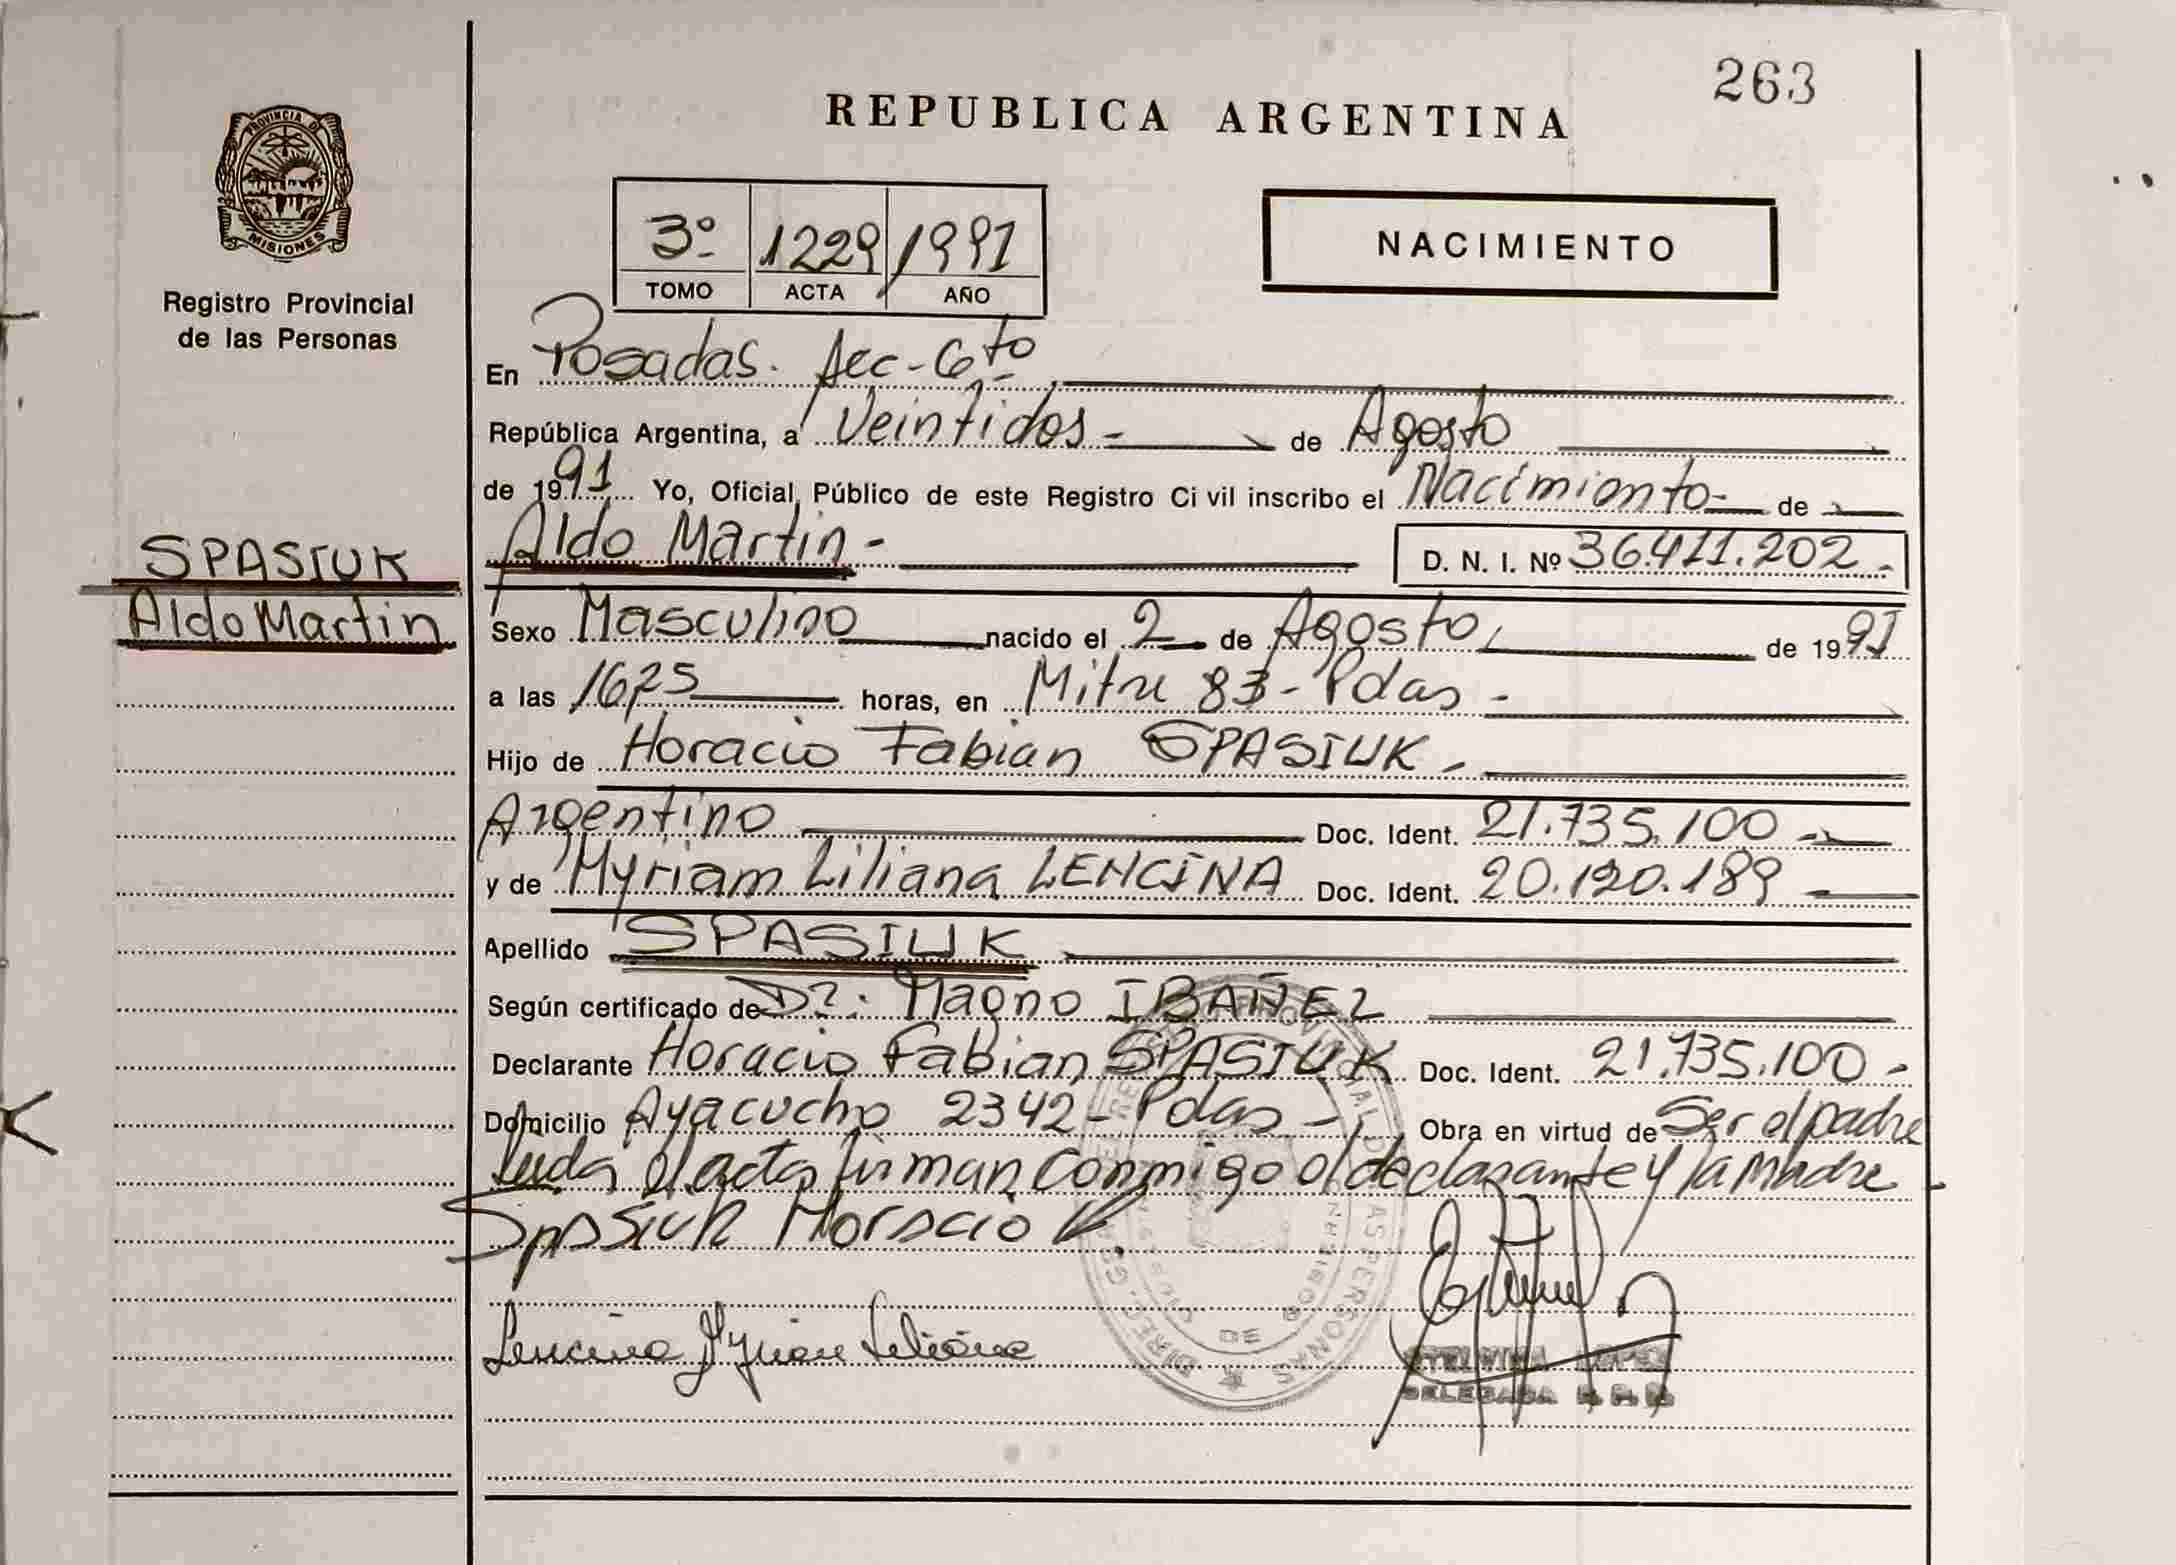 263
REPUBLICA ARGENTINA
PROVINCIA DE
MISIONES
Registro Provincial
de las Personas
3º 1229 1991
TOMO ACTA AÑO
NACIMIENTO
En Posadas. Sec-6to
República Argentina, a Veintidos - de Agosto
de 1991 Yo, Oficial Público de este Registro Civil inscribo el Nacimiento - de
Aldo Martin - D. N. I. Nº 36.411.202 -
SPASIUK
Aldo Martin
Sexo Masculino nacido el 2 de Agosto, de 1991
a las 1625 horas, en Mitre 83 - Pdas -
Hijo de Horacio Fabian SPASIUK -
Argentino Doc. Ident. 21.735.100 -
y de Myriam Liliana LENCINA Doc. Ident. 20.120.189
Apellido SPASIUK
Según certificado de Dr: Magno IBAÑEZ
Declarante Horacio Fabian SPASIUK Doc. Ident. 21.735.100 -
Domicilio Ayacucho 2342 - Pdas - Obra en virtud de Ser el padre
Leida el acta firman conmigo el declarante y la madre -
Spasiuk Horacio F.
Lencina Myrian Liliana
LOPEZ
DELEGADA R. P. P.